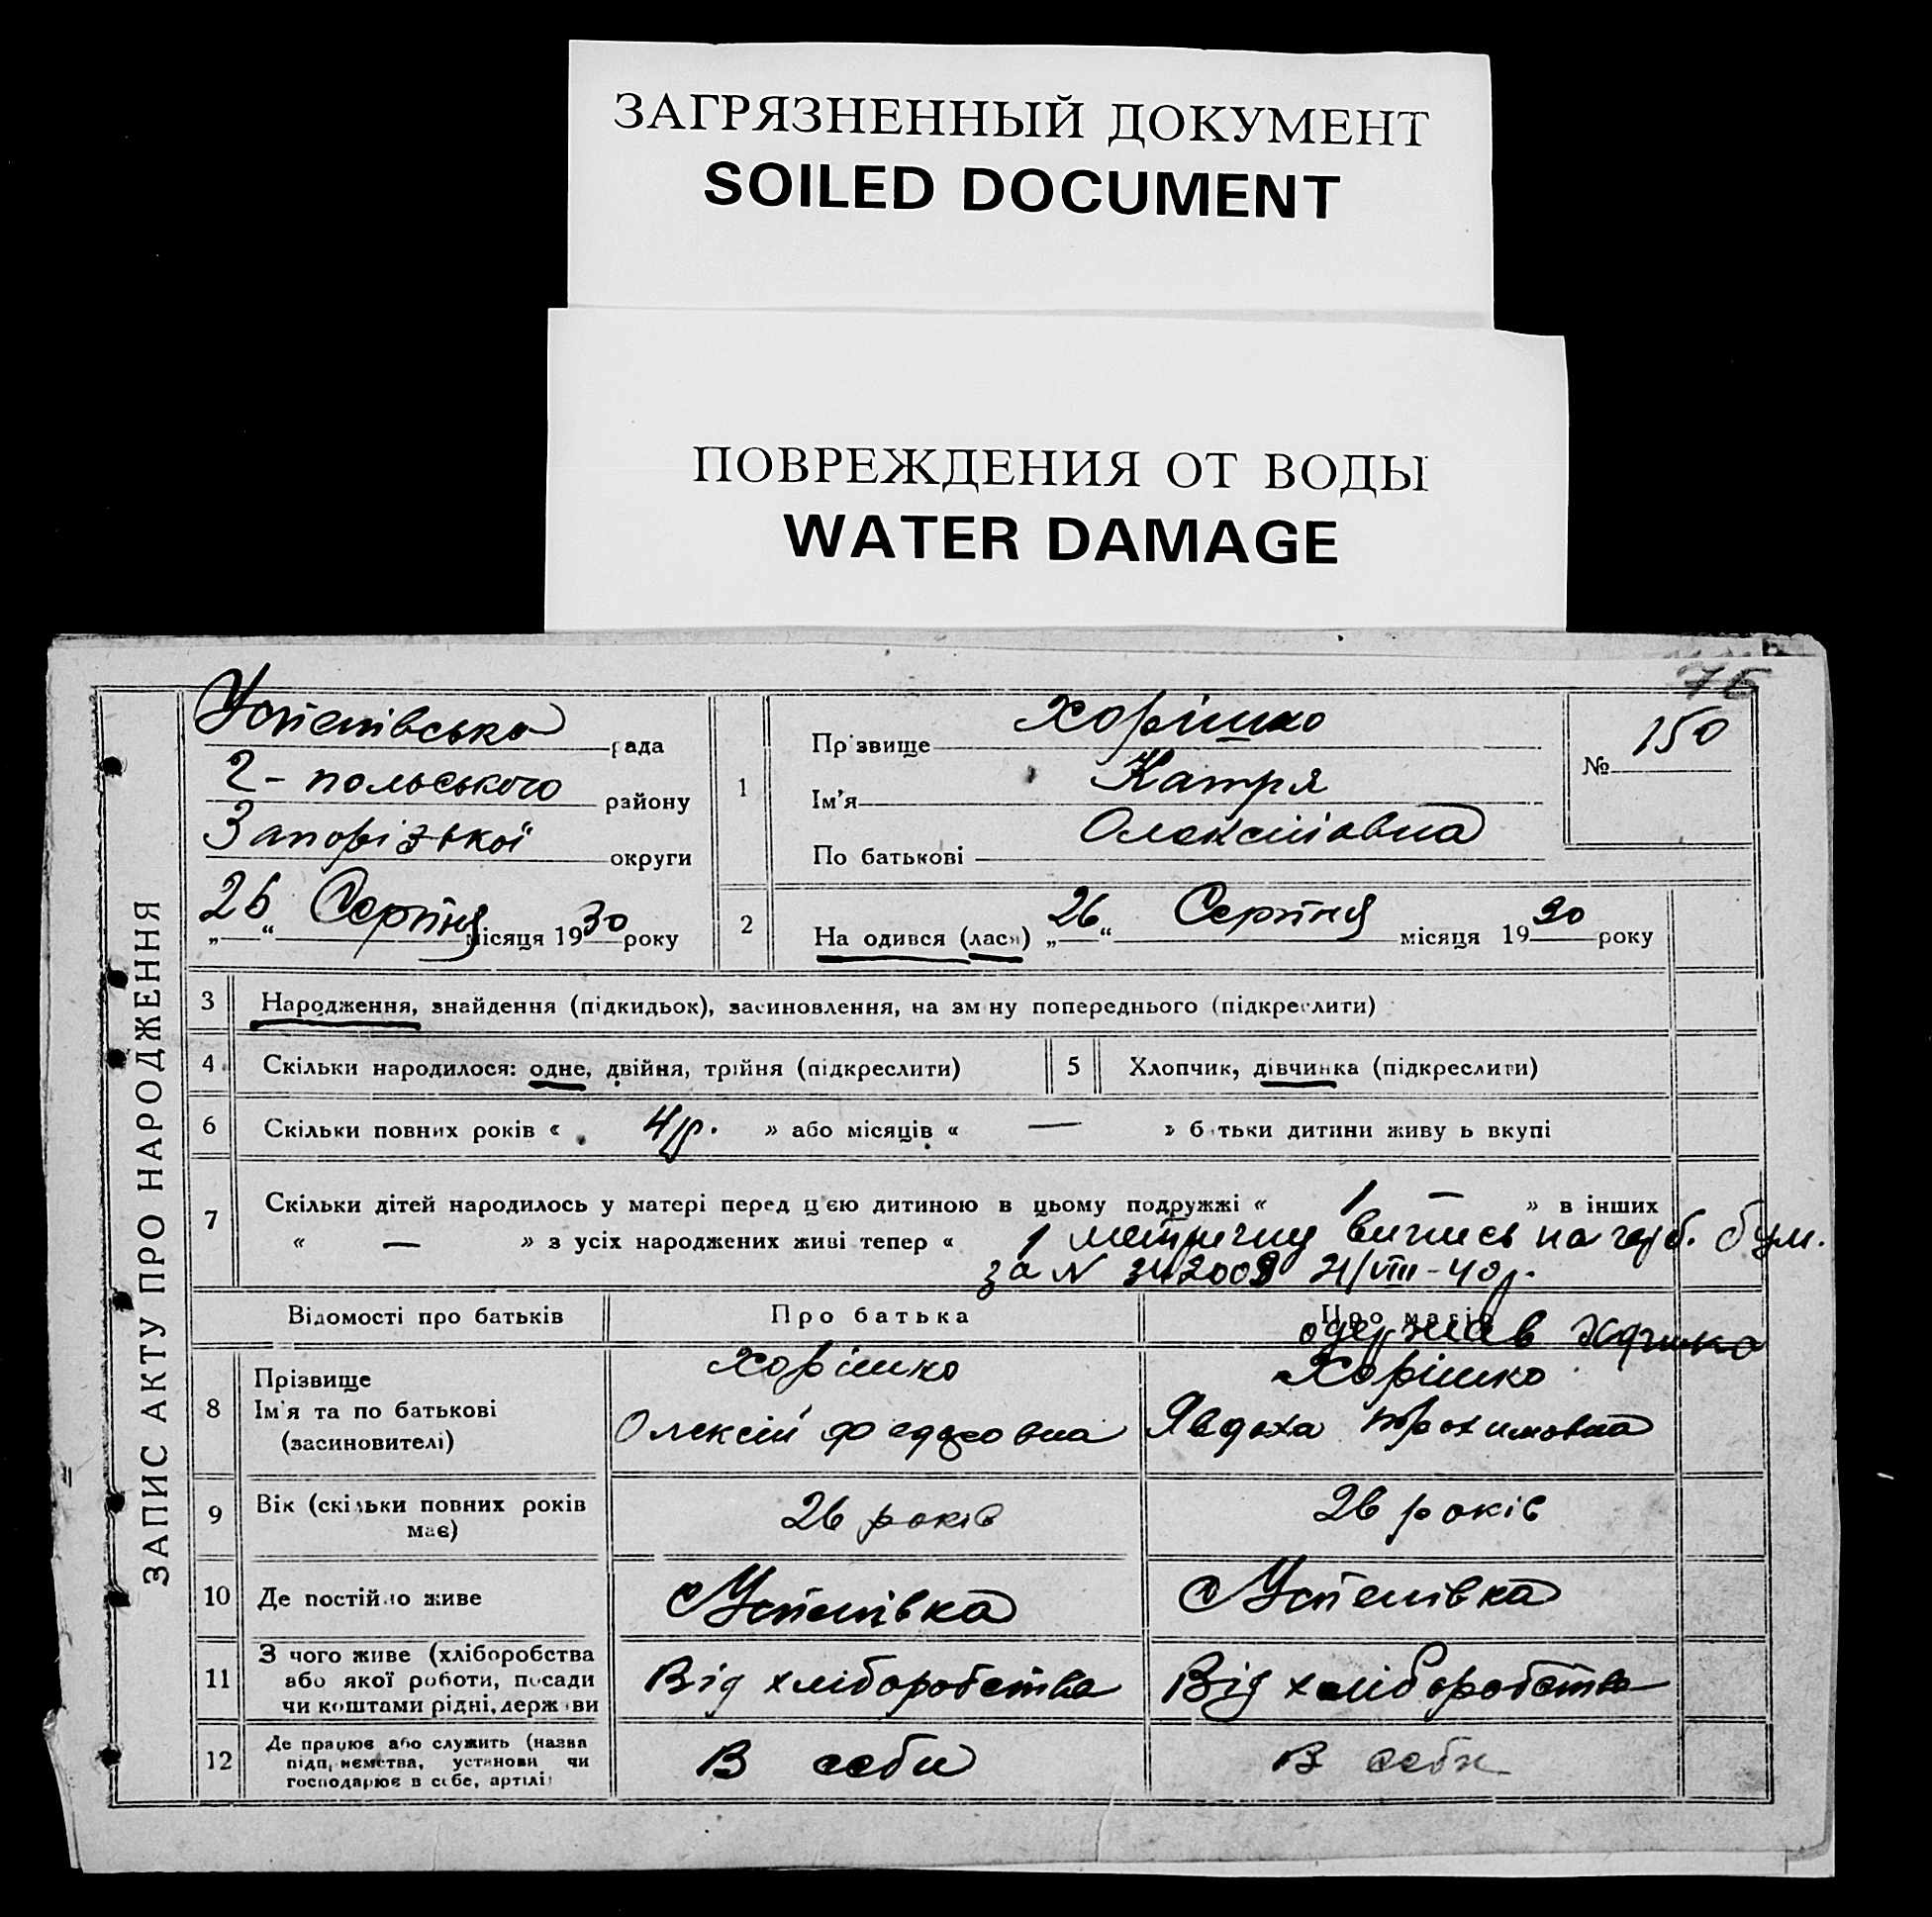 ЗАГРЯЗНЕННЫЙ ДОКУМЕНТ
SOILED DOCUMENT
ПОВРЕЖДЕНИЯ ОТ ВОДЫ
WATER DAMAGE
ЗАПИС АКТУ ПРО НАРОДЖЕННЯ
76
Успенівська рада
Г-польського району
Запорізької округи
"26" Серпня місяця 1930 року
1
Прізвище Хорішко
Ім'я Катря
По батькові Олексіївна
№ 150
2
Народився (лася) "26" Серпня місяця 1930 року
3 Народження, знайдення (підкидьок), засиновлення, на зміну попереднього (підкреслити)
4 Скільки народилося: одне, двійня, трійня (підкреслити)
5 Хлопчик, дівчинка (підкреслити)
6 Скільки повних років « 4 р. » або місяців « — » батьки дитини живуть вкупі
7 Скільки дітей народилось у матері перед цією дитиною в цьому подружжі « 1 — » в інших
« — » з усіх народжених живі тепер « 1 метричну випись на герб. бум.
за N 342009 21/VIII-40р.
одержав
Відомості про батьків Про батька Про матір
8 Прізвище
Ім'я та по батькові
(засиновителі)
Хорішко
Олексій Федоровна
Хорішко
Явдоха Трохимовна
9 Вік (скільки повних років
має)
26 років
26 років
10 Де постійно живе
с Успенівка
с Успенівка
11 З чого живе (хліборобства
або якої роботи, посади
чи коштами рідні, держави
Від хліборобства
Від хліборобства
12 Де працює або служить (назва
підприємства, установи чи
господарює в себе, артілі)
В себи
В себи